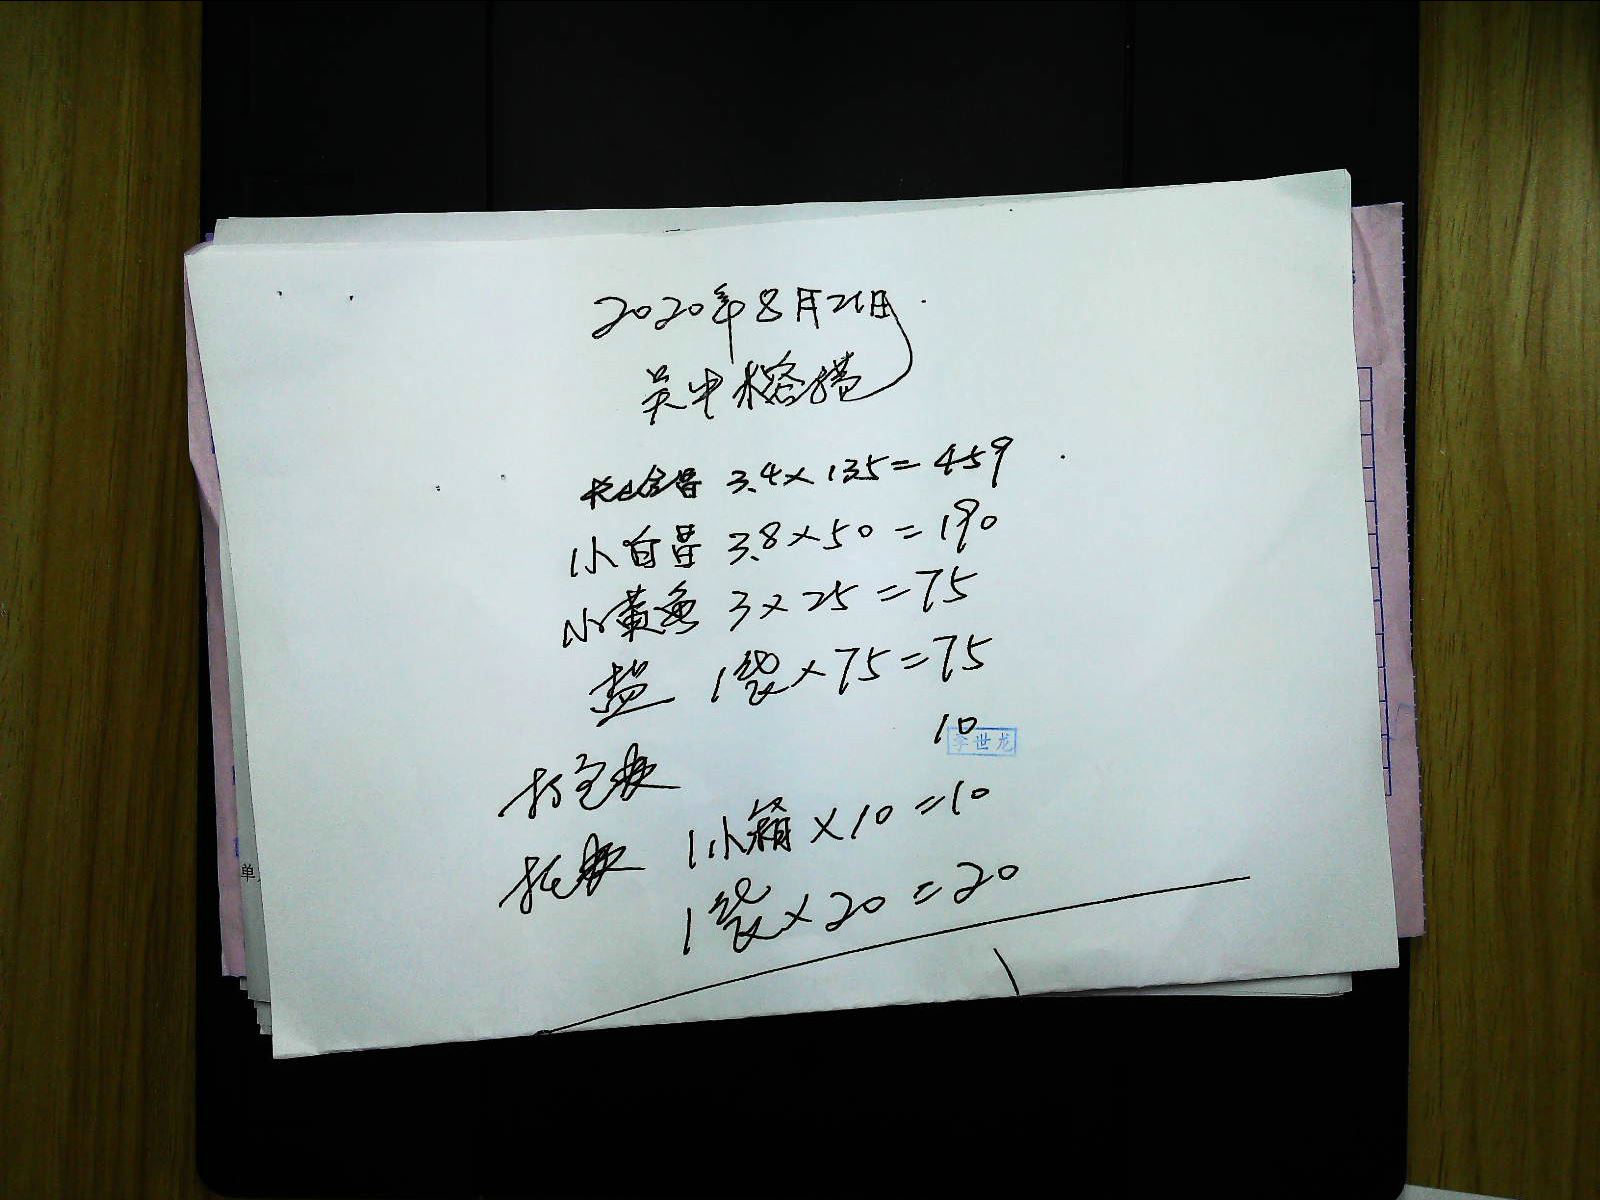 2020年8月21日
吴中榕搭
3.4×135=459
小白 3.8×50=190
小黄鱼 3×25=75
盐 1袋×75=75
10
李世龙
打包
1小箱×10=10
1袋×20=20
单